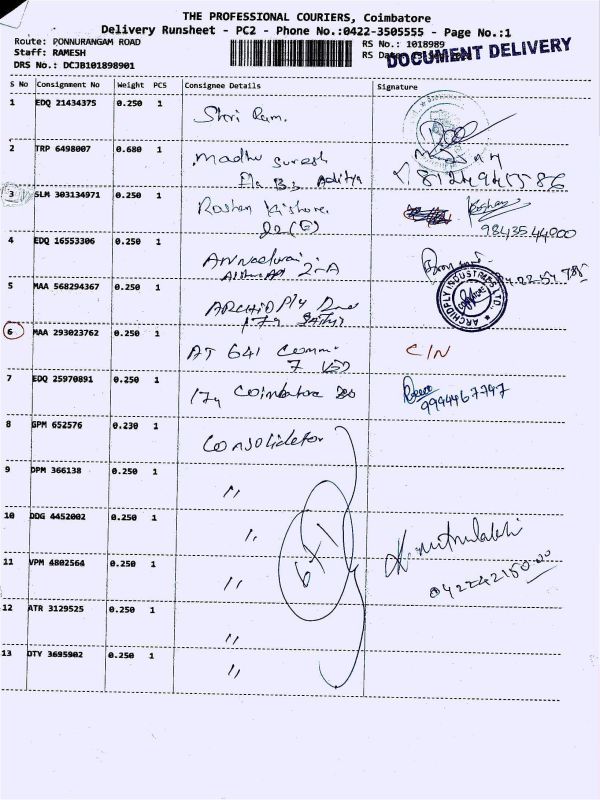 THE PROFESSIONAL COURIERS, Coimbatore
Delivery Runsheet - PC2 - Phone No.:0422-3505555 - Page No.:1
Route: PONNURANGAM ROAD
Staff: RAMESH
DRS No.: DCJB101898901
RS No.: 1018989
RS Date
DOCUMENT DELIVERY
S No Consignment No Weight PCS Consignee Details Signature
1 EDQ 21434375 0.250 1 Shri Ram.
2 TRP 6498007 0.680 1 Madhu Suresh
Aditya
3 SLM 303134971 0.250 1 Roshan Kishore.
22(E)
Roshan
9843544000
4 EDQ 16553306 0.250 1
2-A
5 MAA 568294367 0.250 1 ARCHID Ply
ARCHIDPLY INDUSTRIES LTD.
6 MAA 293023762 0.250 1 AT 641 Comm
7
C/N
7 EDQ 25970891 0.250 1 174 Coimbatore
9994467797
8 GPM 652576 0.230 1 Consolidator
9 DPM 366138 0.250 1 "
10 DDG 4452002 0.250 1 "
11 VPM 4802564 0.250 1 "
6x1
12 ATR 3129525 0.250 1 "
13 DTY 3695902 0.250 1 "